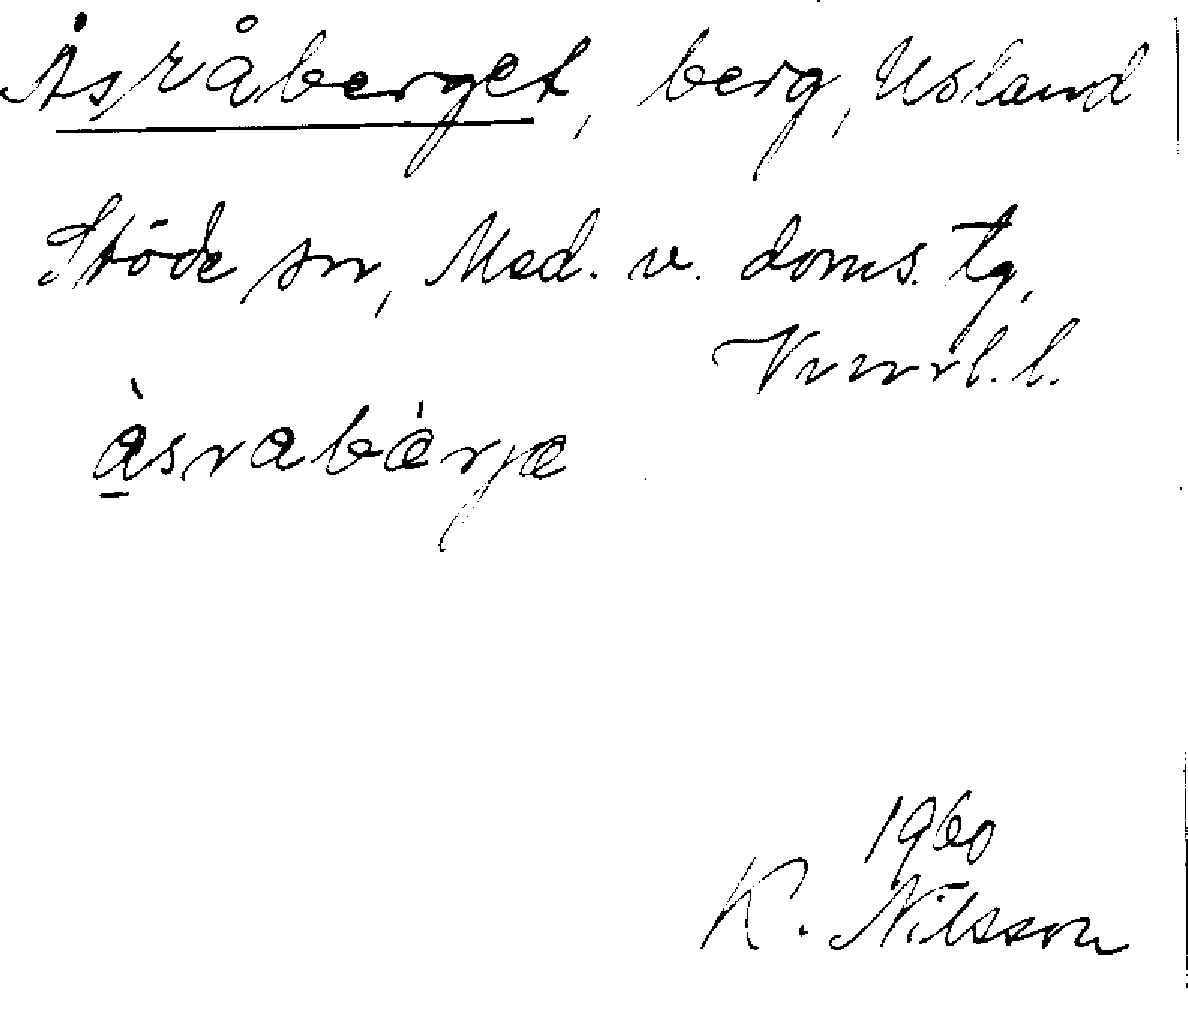 Åsråberget, berg, Usland
Stöde sn, Med. v. doms. tg,
Vnrrl. l.
àsrabærjæ
1960
K. Nilsson